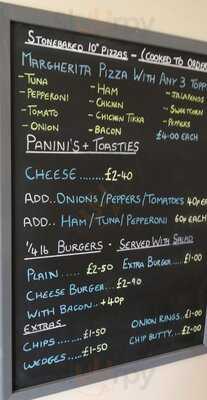 STONEBAKED 10" PIZZAS - (COOKED TO ORDER
MARGHERITA PIZZA WITH ANY 3 TOPP
- TUNA - HAM - JALAPENOS
- PEPPERONI - CHICKEN - SWEETCORN
- TOMATO - CHICKEN TIKKA - PEPPERS
- ONION - BACON £4.00 EACH
PANINI'S + TOASTIES
CHEESE........£2-40
ADD..ONIONS/PEPPERS/TOMATOES 40p EA
ADD.. HAM/TUNA/PEPPERONI 60p EACH
1/4lb BURGERS - SERVED WITH SALAD
PLAIN..... £2-50 EXTRA BURGER.....£1-00
CHEESE BURGER...£2-90
WITH BACON..+40p
EXTRAS
CHIPS........£1-50 ONION RINGS..£1-00
WEDGES......£1-50 CHIP BUTTY...£2-00